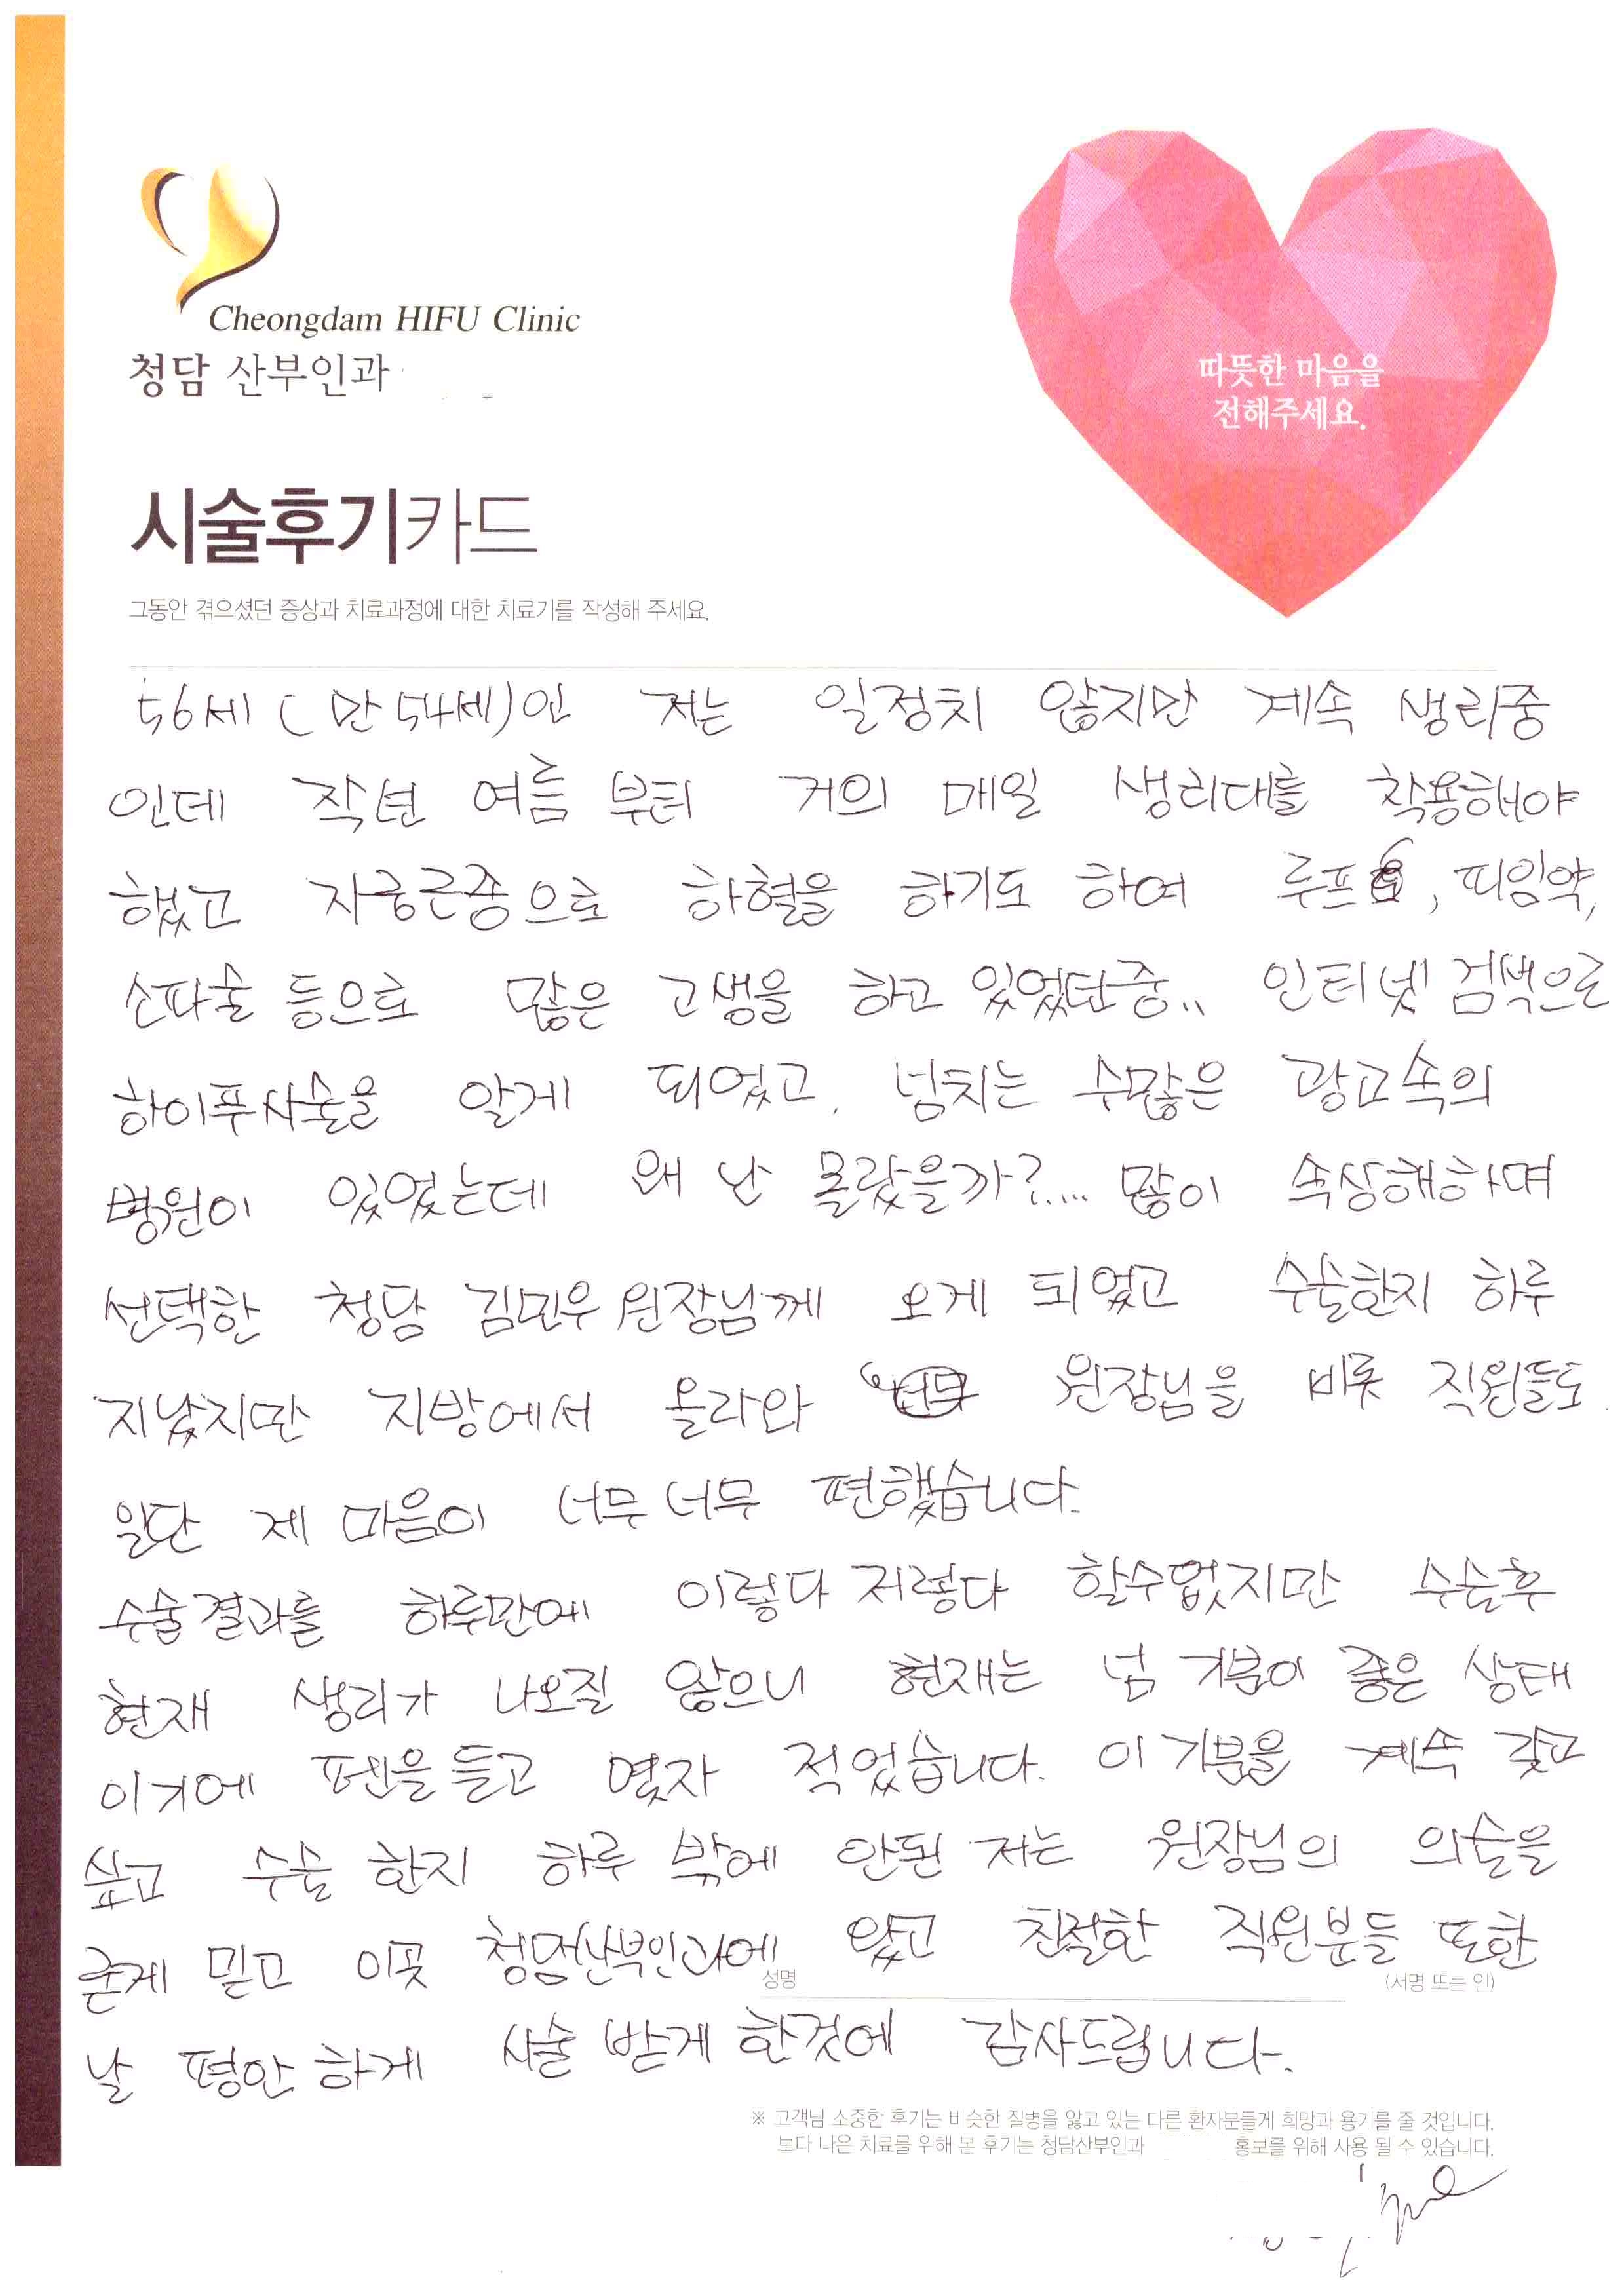 Cheongdam HIFU Clinic
청담 산부인과
따뜻한 마음을
전해주세요.
시술후기카드
그동안 겪으셨던 증상과 치료과정에 대한 치료기를 작성해 주세요.
56세 (만 54세)인 저는 일정치 않지만 계속 생리중
인데 작년 여름 부터 거의 매일 생리대를 착용해야
했고 자궁근종으로 하혈을 하기도 하여 루프, 피임약,
소파술 등으로 많은 고생을 하고 있었단중.. 인터넷 검색으로
하이푸시술을 알게 되었고, 넘치는 수많은 광고속의
병원이 있었는데 왜 난 몰랐을까?.... 많이 속상해하며
선택한 청담 김민우 원장님께 오게 되었고 수술한지 하루
지났지만 지방에서 올라와 원장님을 비롯 직원들도
일단 제 마음이 너무 너무 편했습니다.
수술결과를 하루만에 이렇다 저렇다 할수없지만 수술후
현재 생리가 나오질 않으니 현재는 넘 기분이 좋은 상태
이기에 펜을 들고 몇자 적었습니다. 이 기분을 계속 갖고
싶고 수술 한지 하루 밖에 안된 저는 원장님의 의술을
굳게 믿고 이곳 청담산부인과에 왔고 친절한 직원분들 또한
성명 (서명 또는 인)
날 평안 하게 시술 받게 한것에 감사드립니다.
※ 고객님 소중한 후기는 비슷한 질병을 앓고 있는 다른 환자분들게 희망과 용기를 줄 것입니다.
보다 나은 치료를 위해 본 후기는 청담산부인과 홍보를 위해 사용 될 수 있습니다.